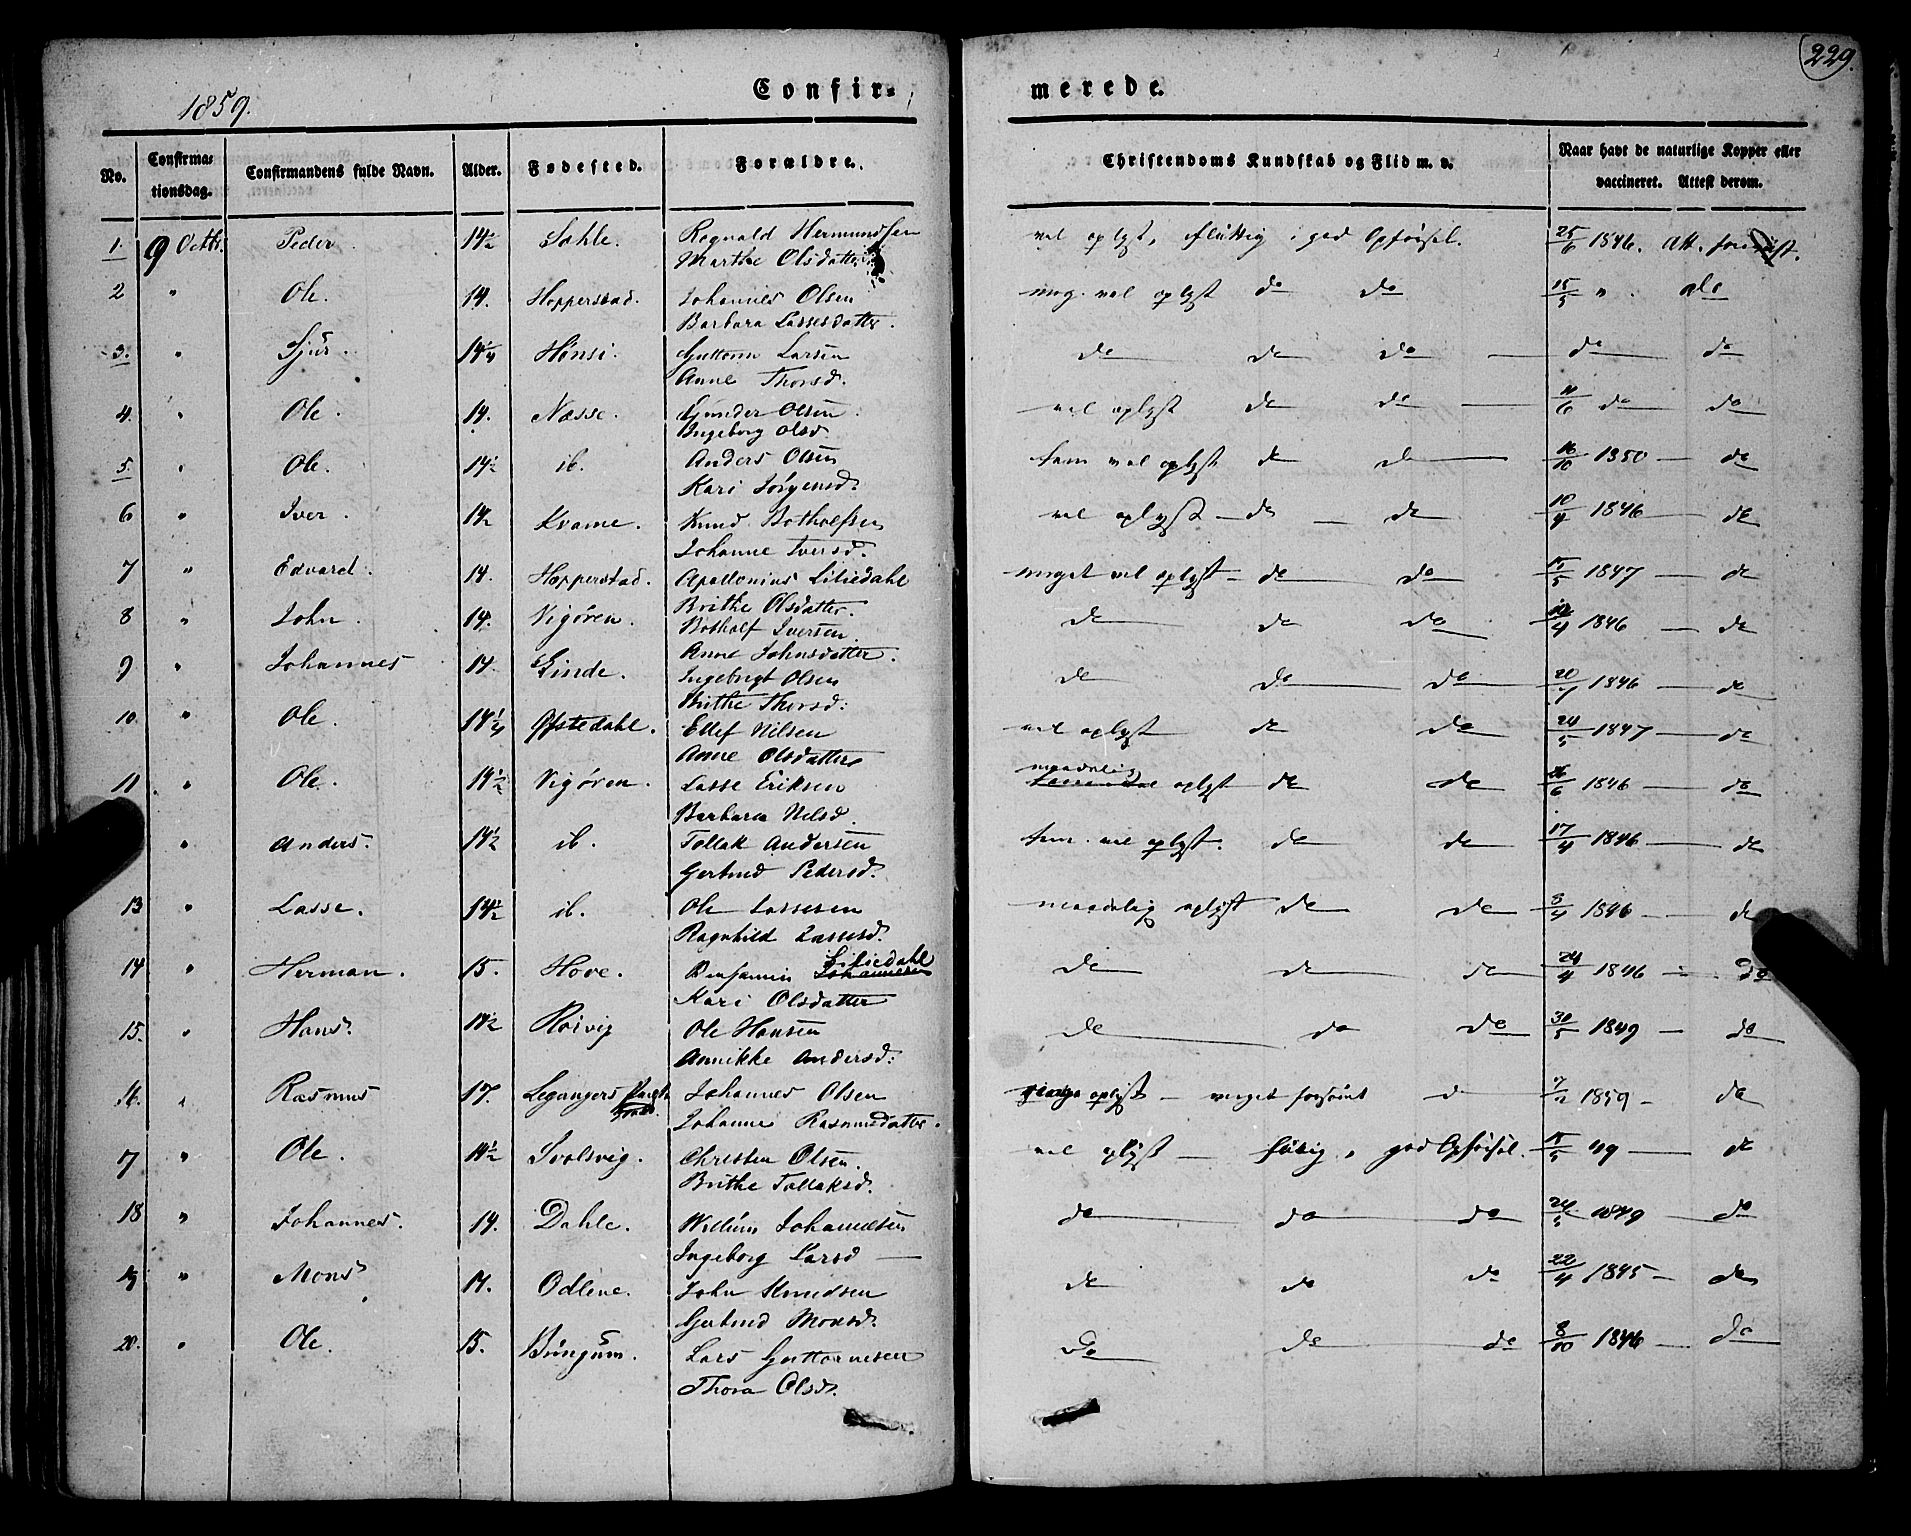 229.
1859.
Confir= merede.
No. Confirma= tionsdag. Confirmandens fulde Navn. Alder. Fødested. Forældre. Christendoms Kundskab og Flid m. v. Naar havt de naturlige Kopper eller vaccineret. Attest derom.
1. 9 Octbr. Peder. 14½ Sahle. Rognald Hermundsen vel oplyst, flittig i god Opførsel. 25/6 1846. Att. forevist.
Marthe Olsdatter
2 " Ole. 14. Hopperstad. Johannes Olsen meg. vel oplyst do do 15/5 ". do
Barbara Lassesdatter.
3. " Sjur. 14¼ Hønsi. Guttorm Larsen do do do do do
Anne Thorsd.
4. " Ole. 14. Næsse. Gunder Olsen. vel oplyst do do 11/6 do do
Ingeborg Olsd.
5. " Ole. 14½ ib. Anders Olsen tem. vel oplyst do do 16/10 1850 — do
Kari Jørgensd.
6 " Iver. 14½ Kvame. Knud Botholfsen vel oplyst — do — do 10/4 1846 — do
Johanne Iversd.
7 " Edvard. 14. Hopperstad. Apollonius Liliedahl meget vel oplyst — do do 15/5 1847 — do
Brithe Olsdatter.
8 " John. 14. Vigøren. Botholf Iversen. do do do /4 1846 — do
Anne Johnsdatter.
9 " Johannes 14. Hinde. Ingebrigt Olsen do do do 20/7 1846 — do
Brithe Thorsd:
10. " Ole. 14¼ Ofstedahl. Ellef Nilsen vel oplyst do do 24/5 1847 — do
Anne Olsdatter
11 " Ole. 14½ Vigøren. Lasse Eriksen maadelig oplyst do do 26/6 1846 — do
Barbara Nilsd.
" Anders. 14½ ib. Tollak Andersen tem. vel oplyst. do do 17/4 1846 — do
Gertrud Pedersd.
13 " Lasse. 14½ ib. Ole Lassesen maadelig oplyst do do 8/4 1846 — do
Ragnhild Lassesd.
14 " Herman. 15. Hove. Benjamin Johannesen Liliedahl do do do 24/4 1846 — do
Kari Olsdatter
15. " Hans. 14½ Roivig Ole Hansen do do do 30/5 1849 — do
Annikke Andersd:
16. " Rasmus 17. Leganger Præstegjæld. Johannes Olsen oplyst — meget forsømt d 7/2 1859 — do
Johanne Rasmusdatter.
7 " Ole. 14½ Svolsvig. Christen Olsen. vel oplyst — flittig, god Opførsel. 15/5 49 — do
Brithe Tollaksd.
18 " Johannes. 14. Dahle. Willum Johannesen do do do 24/5 1849 — do
Ingeborg Larsd —
19 " Mons 14. Odlene. John Knudsen do do do 22/4 1845 — do
Gertrud Monsd.
20. " Ole. 15. Bungum. Lars Guttormsen do do do 8/10 1846 — do
Thora Olsd.